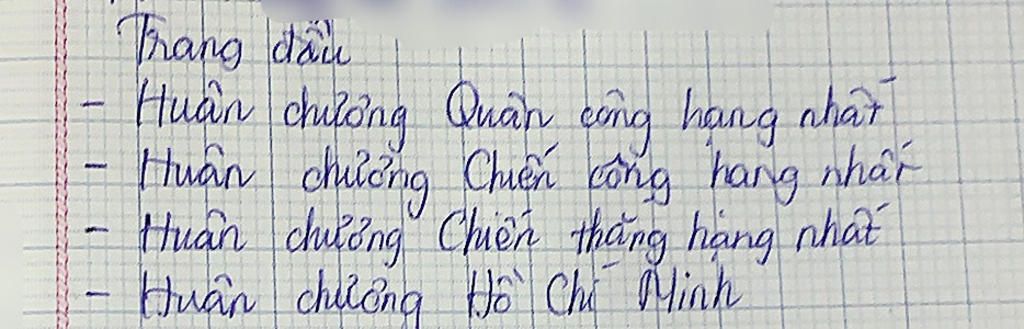 Trang đầu
- Huân chương Quân công hạng nhất
- Huân chương Chiến công hạng nhất
- Huân chương Chiến thắng hạng nhất
- Huân chương Hồ Chí Minh